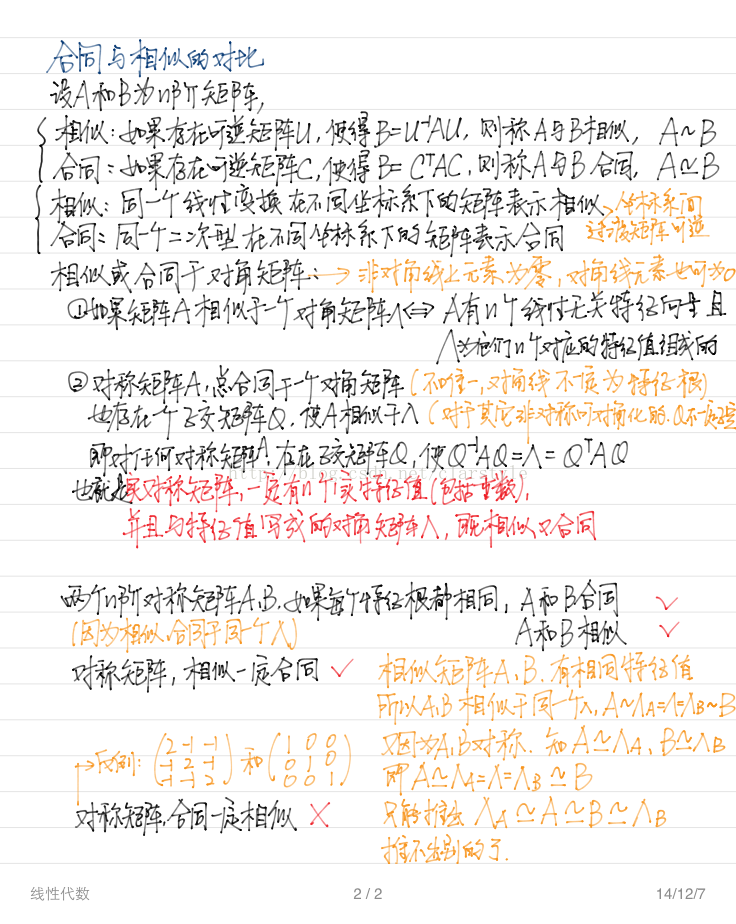 合同与相似的对比
设A和B为n阶矩阵,
相似:如果存在可逆矩阵U,使得B=U⁻¹AU,则称A与B相似, A~B
合同:如果存在可逆矩阵C,使得B=CᵀAC,则称A与B合同, A≃B
相似:同一个线性变换在不同坐标系下的矩阵表示相似 > 坐标系间
合同:同一个二次型在不同坐标系下的矩阵表示合同 过渡矩阵可逆
相似或合同于对角矩阵:→非对角线上元素为零,对角线元素也可为0
①如果矩阵A相似于一个对角矩阵Λ⇔A有n个线性无关特征向量且
Λ为他们n个对应的特征值组成的
②对称矩阵A,总合同于一个对角矩阵(不唯一,对角线不一定为特征根)
也存在一个正交矩阵Q,使A相似于Λ(对于其它非对称可对角化的,Q不一定是
即对任何对称矩阵A,存在正交矩阵Q,使Q⁻¹AQ=Λ=QᵀAQ
也就是实对称矩阵,一定有n个实特征值(包括重数),
并且与特征值写成的对角矩阵Λ,既相似又合同
两个n阶对称矩阵A,B,如果每个特征根都相同,A和B合同 ✓
(因为相似、合同于同一个Λ) A和B相似 ✓
对称矩阵,相似一定合同 ✓
相似矩阵A,B,有相同特征值
所以A,B相似于同一个Λ,A~ΛA=Λ=ΛB~B
又因为A,B对称.知A≃ΛA,B≃ΛB
即A≃ΛA=Λ=ΛB≃B
→反例:
2 -1 -1
-1 2 -1
-1 -1 2
和
1 0 0
0 1 0
0 0 1
对称矩阵,合同一定相似 ✗
只能推出ΛA≃A≃B≃ΛB
推不出别的了.
线性代数
2 / 2
14/12/7